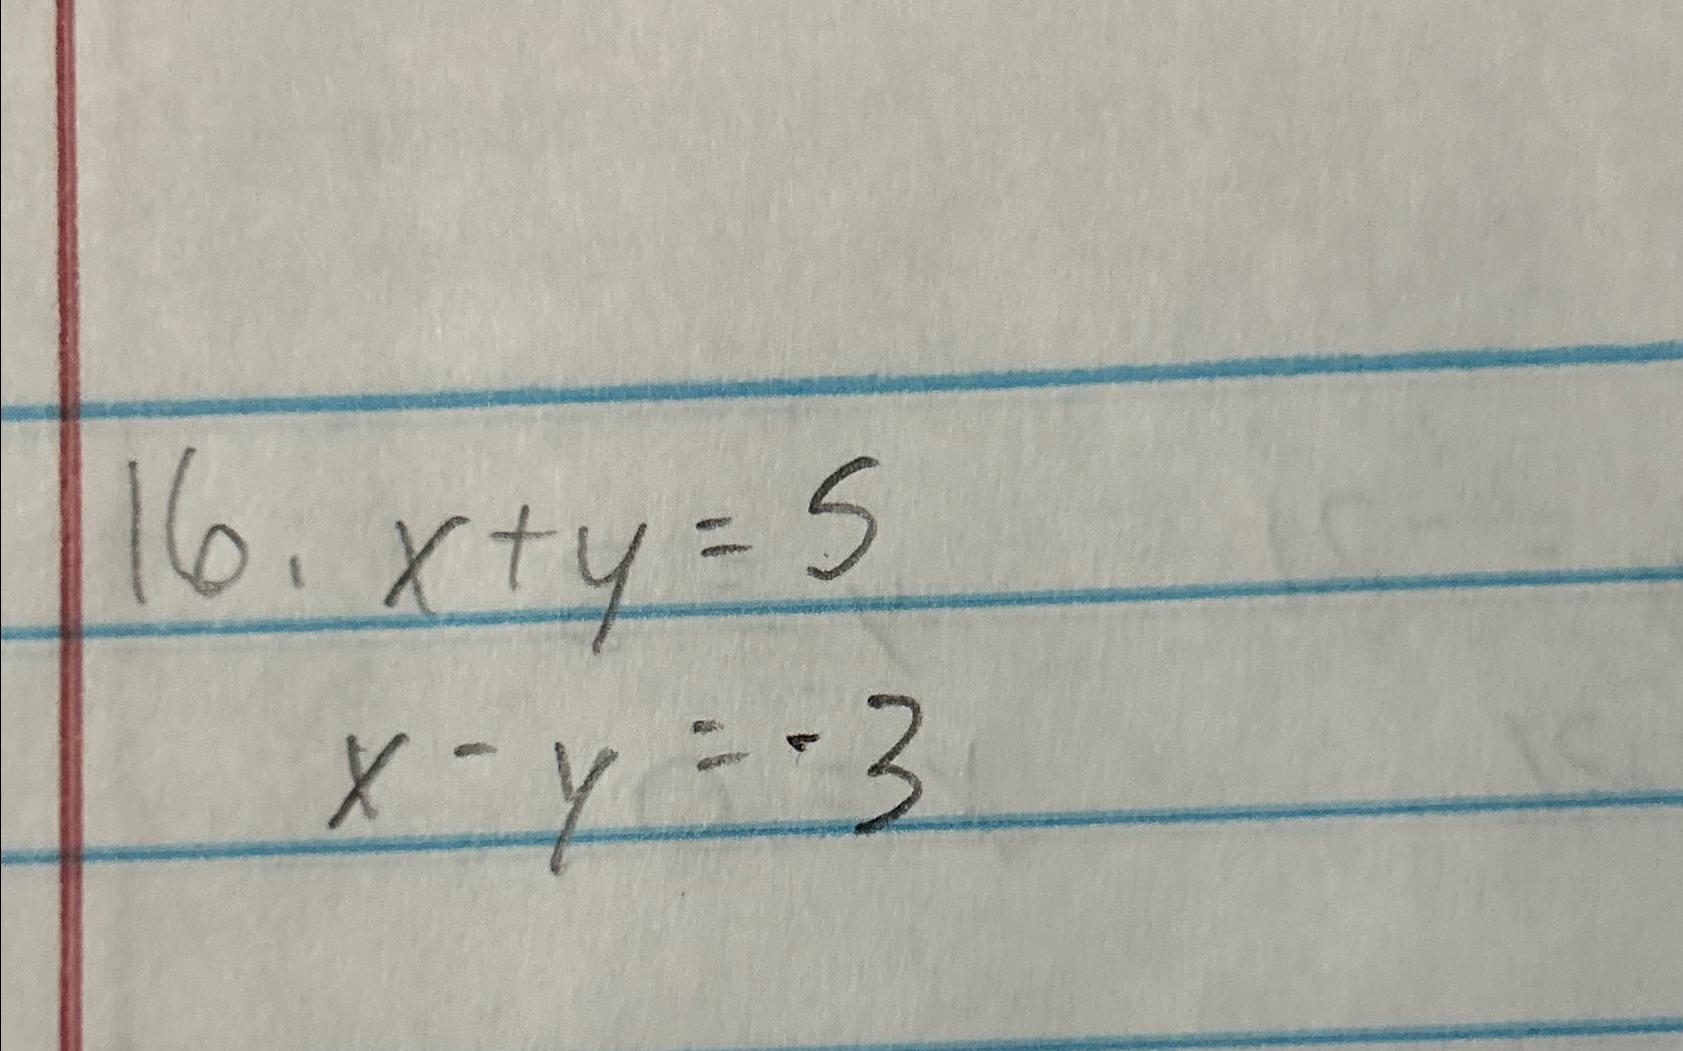 16. x+y=5
x-y=-3